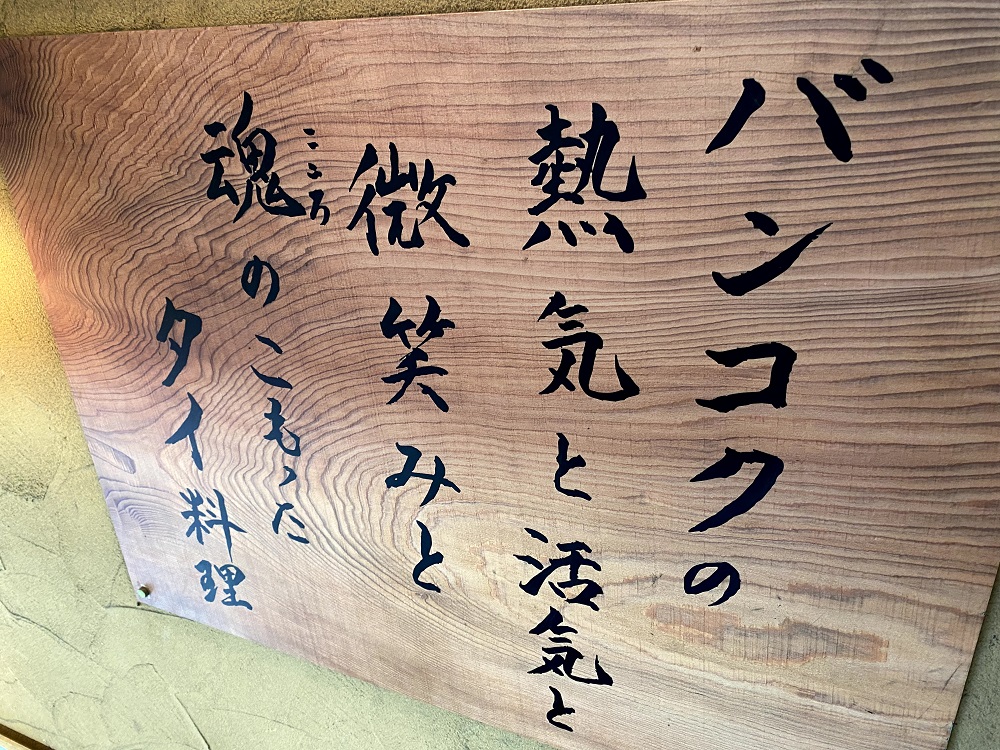 バンコクの
熱気と活気と
微笑みと
こころ
魂のこもった
タイ料理